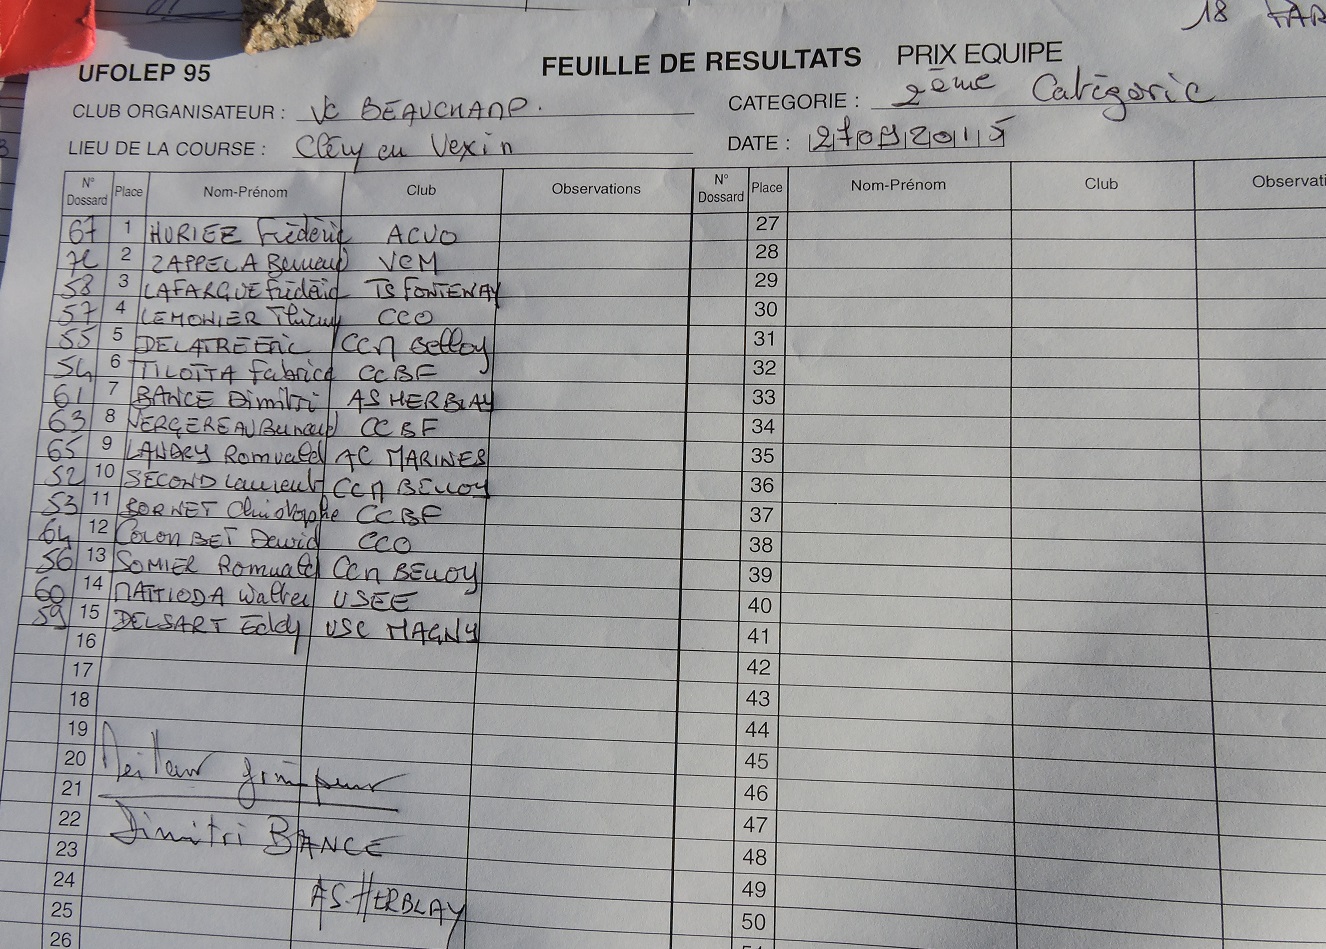 18 PAR
UFOLEP 95
FEUILLE DE RESULTATS PRIX EQUIPE
CLUB ORGANISATEUR : VC BEAUCHAMP.
CATEGORIE : 2ème Catégorie
LIEU DE LA COURSE : Cléry en Vexin
DATE : 27092015
N° Dossard Place Nom-Prénom Club Observations N° Dossard Place Nom-Prénom Club Observati
67 1 HURIEZ Frédéric ACVO 27
2 ZAPPELA Bernard VCM 28
58 3 LAFARGUE Frédéric TS FONTENAY 29
57 4 LEMONIER Thierry CCO 30
55 5 DELATRE Eric CCM Belloy 31
54 6 TILOTTA Fabrice CCBF 32
61 7 BANCE Dimitri AS HERBLAY 33
63 8 VERGEREAU Bernard CCBF 34
65 9 LANDRY Romuald AC MARINES 35
52 10 SECOND Laurent CCM BELLOY 36
53 11 BORNET Christophe CCBF 37
64 12 COLOMBET David CCO 38
56 13 SOMIER Romuald CCM BELLOY 39
60 14 MATTIODA Walter USEE 40
59 15 DELSART Eddy USC MAGNY 41
16 42
17 43
18 44
19 45
20 Meilleur grimpeur 46
21 47
22 Dimitri BANCE 48
23 49
24 AS.HERBLAY 50
25
26